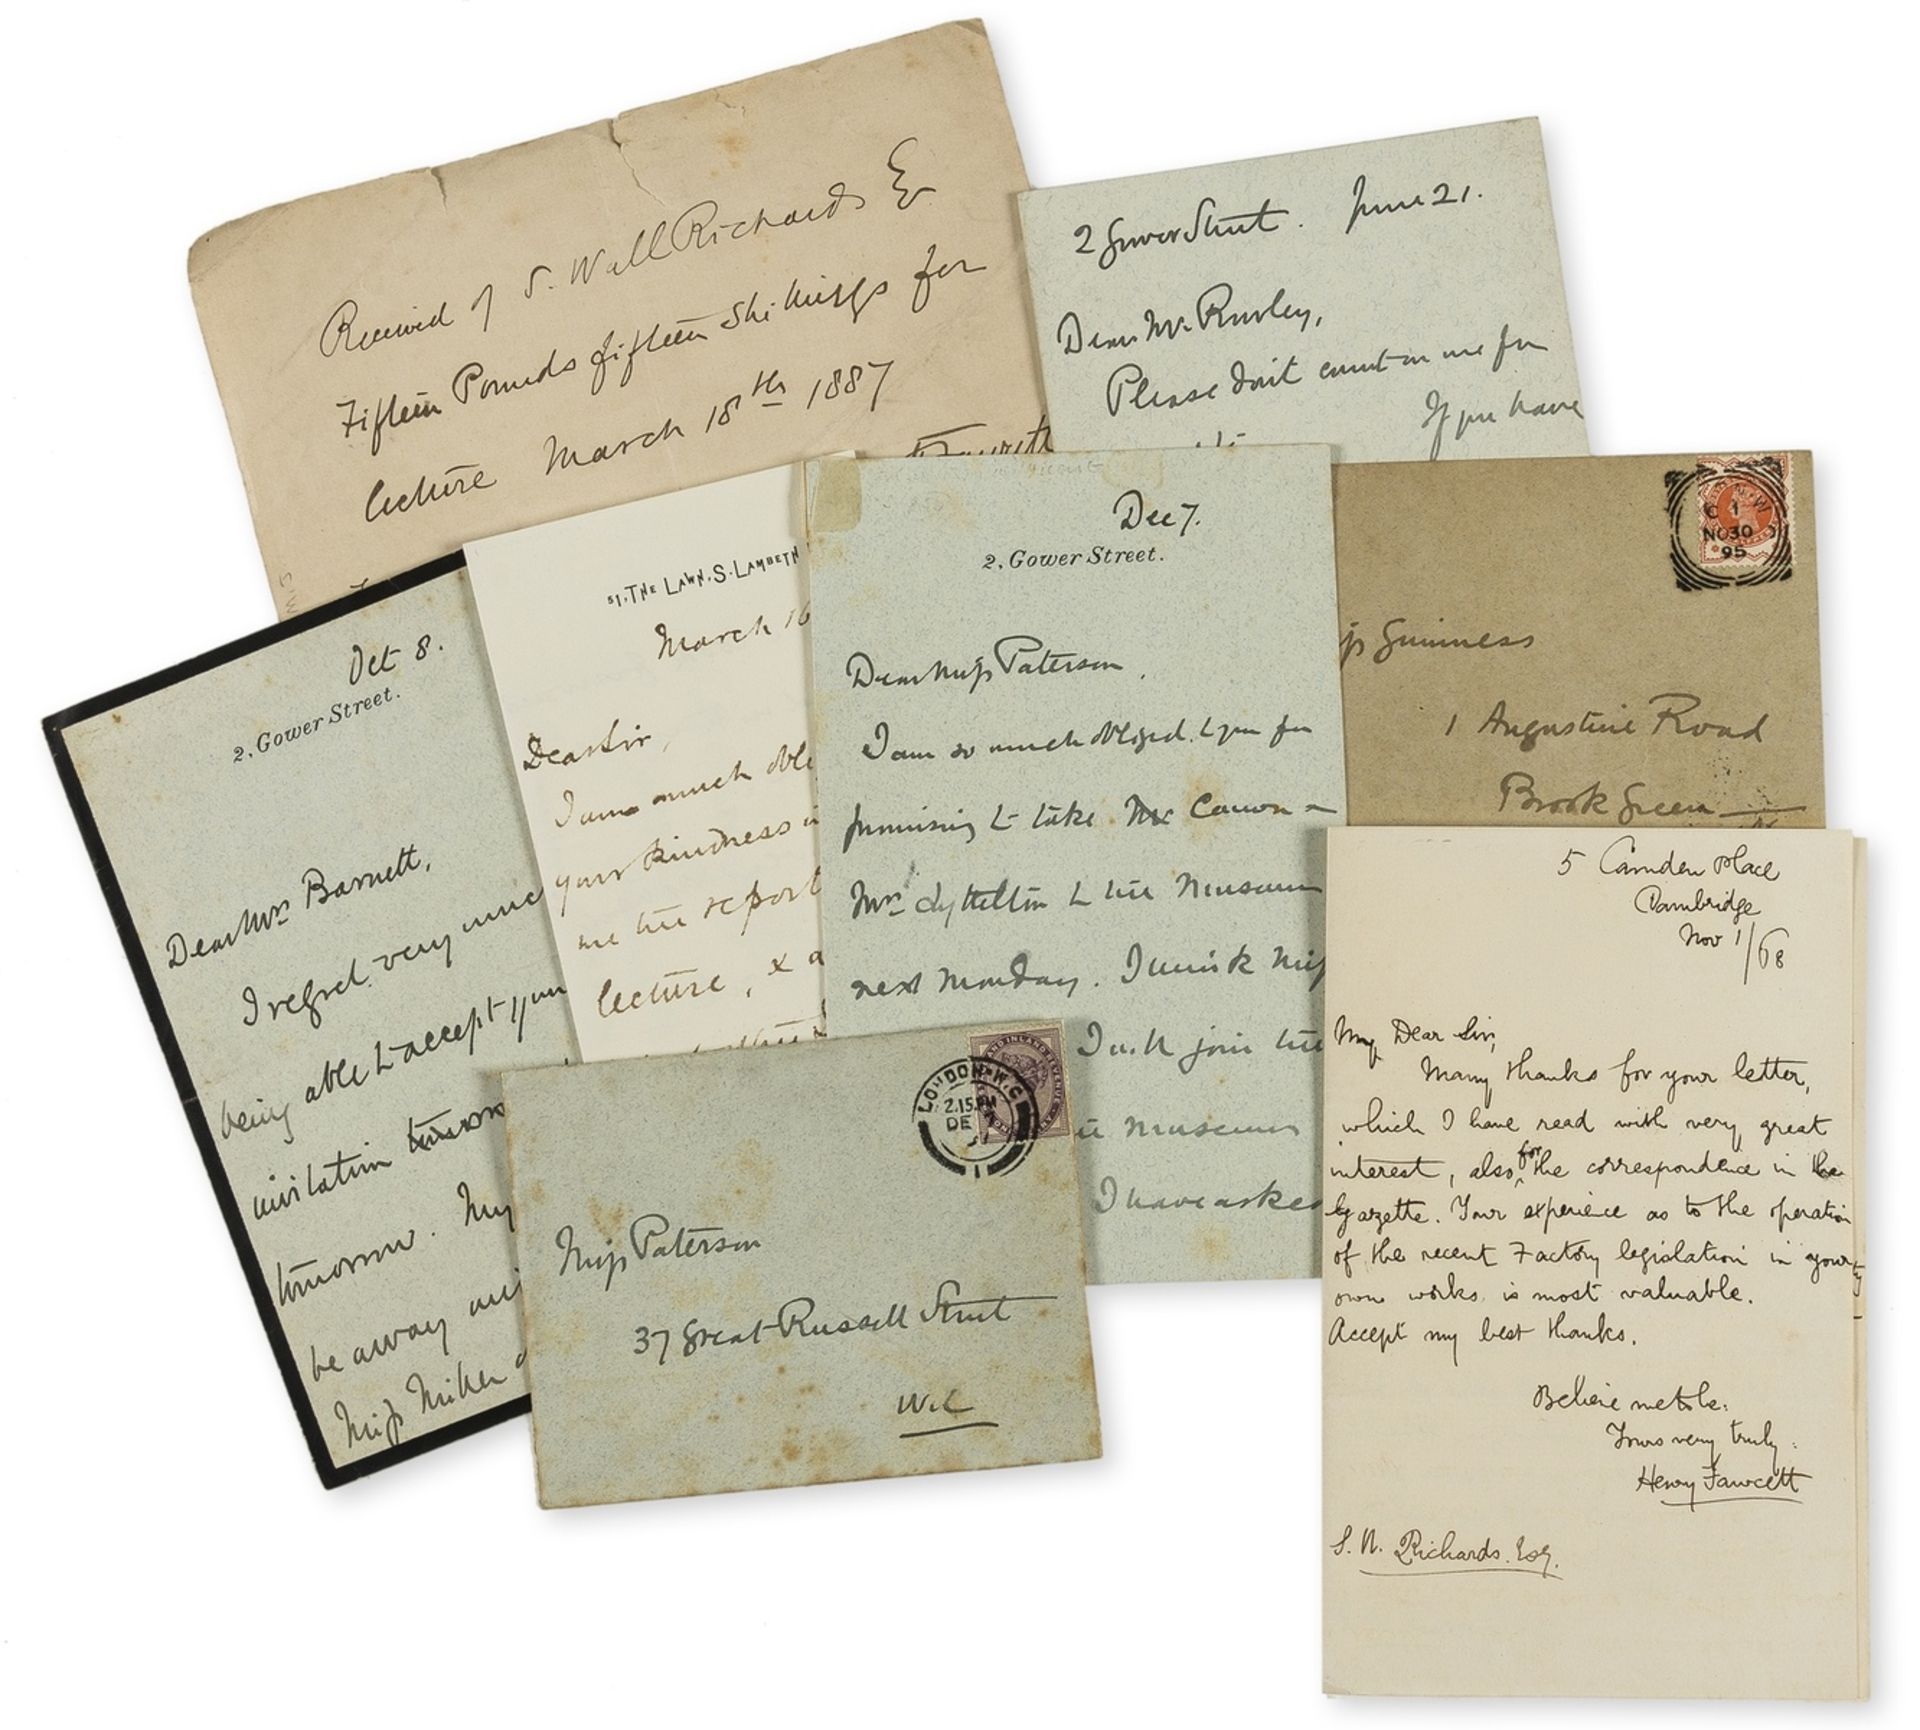 Received of S. Wall Richards Eq
Fifteen Pounds fifteen shillings for
lecture March 18th 1887
Fawcett
2 Gower Street. June 21.
Dear Mr.
Please don't count on me for
If you have
Oct 8.
2, Gower Street.
Dear Mrs Barnett,
I regret very much
being able to accept your
invitation
tomorrow. My
be away
Miss Miller
51, THE LAWN, S. LAMBETH
March 16
Dear Sir,
I am much obli
your kindness i
me the report
lecture, & a
Dec 7.
2, Gower Street.
Dear Miss Paterson,
I am so much obliged to you for
promising to take Canon
Mrs Lyttelton to the Museum
next Monday. I think Miss
I will join the
Museum
I have aske
NO 30
95
Guinness
1 Augustine Road
Brook Green
LONDON. W.C
2.15 PM
DE
1
Miss Paterson
37 Great Russell Street
W.C
5 Camden Place
Cambridge
Nov 1/68
My Dear Sir,
Many thanks for your letter,
which I have read with very great
interest, also for the correspondence in the
Gazette. Your experience as to the operation
of the recent Factory legislation in your
own works is most valuable.
Accept my best thanks.
Believe me to be.
Yours very truly.
Henry Fawcett
S. W. Richards. Esq.